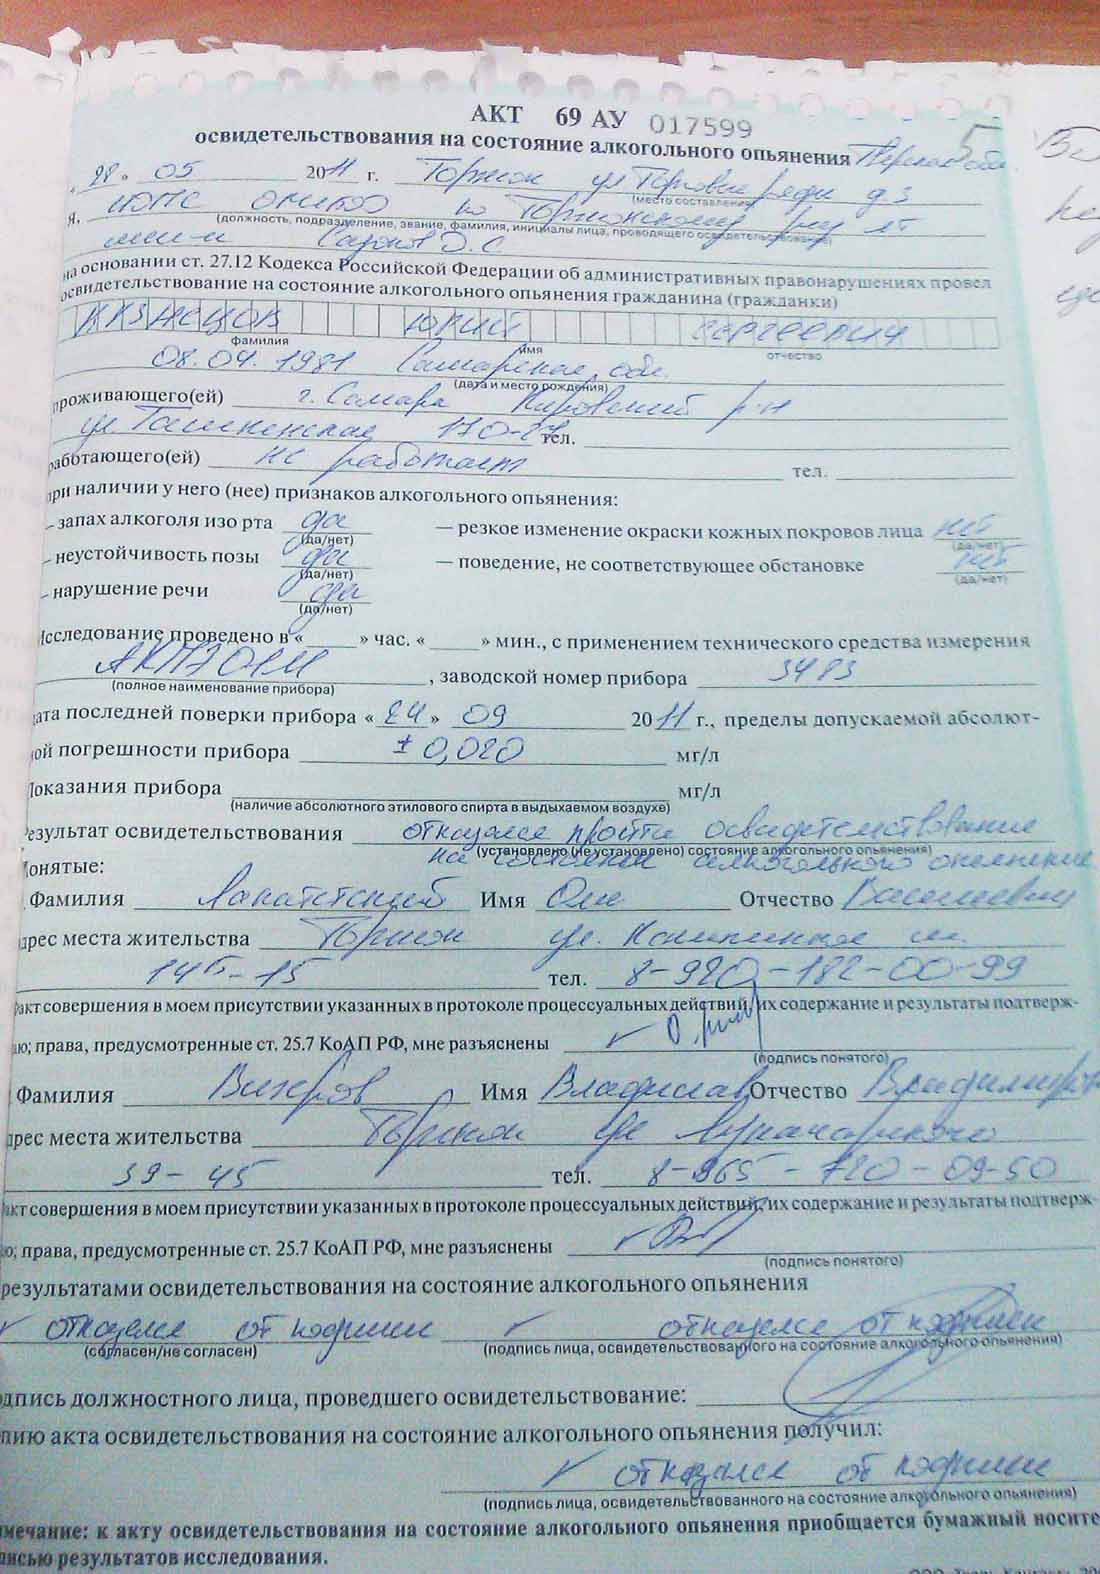 АКТ 69 АУ 017599 5
освидетельствования на состояние алкогольного опьянения Тверская обл.
« 28 » 05 2011 г. Торжок ул Торговые ряды д.3
(место составления)
Я, ИДПС ОГИБДД по Торжокскому р-ну л-т
(должность, подразделение, звание, фамилия, инициалы лица, проводящего освидетельствование)
мил-и Д.С
на основании ст. 27.12 Кодекса Российской Федерации об административных правонарушениях провел
освидетельствование на состояние алкогольного опьянения гражданина (гражданки)
Юрий Сергеевич
фамилия имя отчество
08.04.1981 Самарская обл.
(дата и место рождения)
проживающего(ей) г. Самара Кировский р-н
ул. Ташкенская 170-27 тел.
работающего(ей) не работает тел.
при наличии у него (нее) признаков алкогольного опьянения:
– запах алкоголя изо рта да — резкое изменение окраски кожных покровов лица нет
(да/нет) (да/нет)
– неустойчивость позы да — поведение, не соответствующее обстановке нет
(да/нет) (да/нет)
– нарушение речи да
(да/нет)
Исследование проведено в « » час. « » мин., с применением технического средства измерения
АКПЭ 01М , заводской номер прибора 3483
(полное наименование прибора)
дата последней поверки прибора « 24 » 09 2011 г., пределы допускаемой абсолют-
ной погрешности прибора ± 0,020 мг/л
Показания прибора мг/л
(наличие абсолютного этилового спирта в выдыхавмом воздухе)
Результат освидетельствования отказался пройти освидетельствование
(установлено (не установлено) состояние алкогольного опьянения)
на состояние алкогольного опьянение
Понятые:
Фамилия Имя Олег Отчество Васильевич
Адрес места жительства Торжок ул. ш.
14б-15 тел. 8-920-182-00-99
Факт совершения в моем присутствии указанных в протоколе процессуальных действий, их содержание и результаты подтверж-
даю; права, предусмотренные ст. 25.7 КоАП РФ, мне разъяснены
(подпись понятого)
Фамилия Вихров Имя Владислав Отчество
Адрес места жительства Торжок ул Луначарского
39-45 тел. 8-965-720-09-50
Факт совершения в моем присутствии указанных в протоколе процессуальных действий, их содержание и результаты подтверж-
даю; права, предусмотренные ст. 25.7 КоАП РФ, мне разъяснены
(подпись понятого)
результатами освидетельствования на состояние алкогольного опьянения
отказался от подписи отказался от подписи
(согласен/не согласен) (подпись лица, освидетельствованного на состояние алкогольного опьянения)
подпись должностного лица, проведшего освидетельствование:
копию акта освидетельствования на состояние алкогольного опьянения получил:
отказался от подписи
(подпись лица, освидетельствованного на состояние алкогольного опьянения)
мечание: к акту освидетельствования на состояние алкогольного опьянения приобщается бумажный носите
писью результатов исследования.